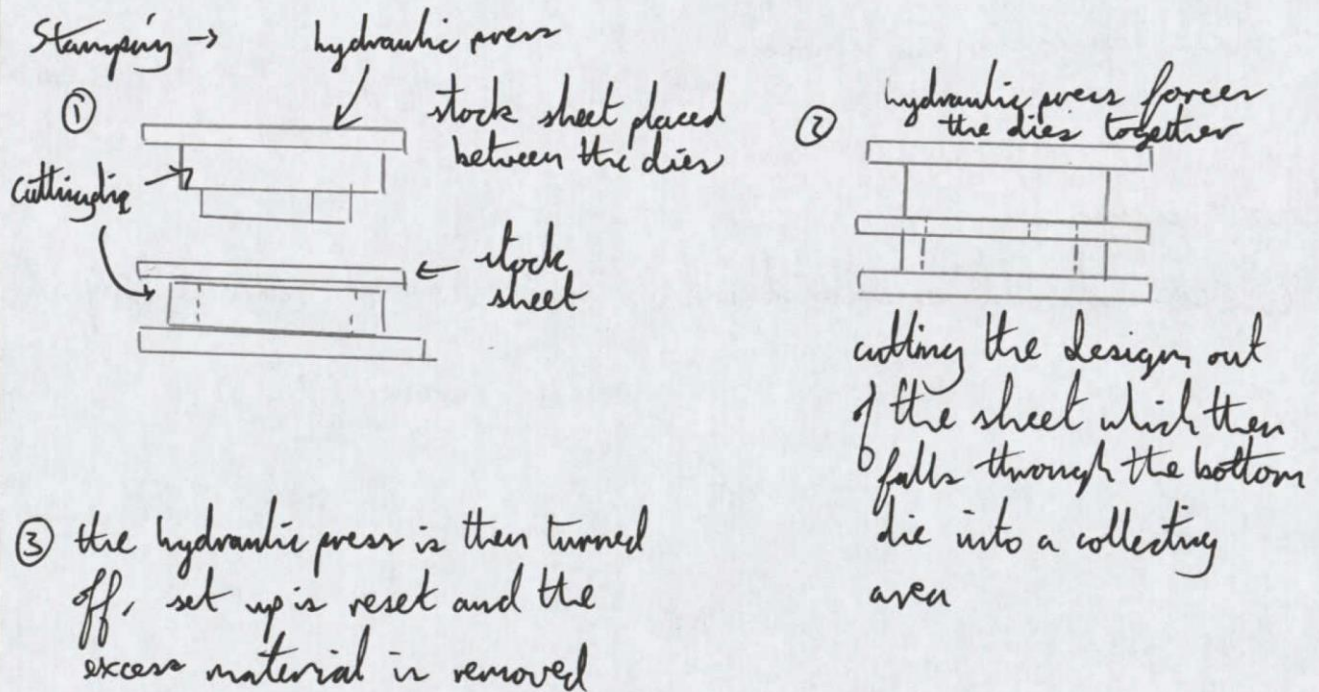 Stamping →
hydraulic press
①
stock sheet placed
between the dies
cutting die
stock
sheet
②
hydraulic press forces
the dies together
cutting the design out
of the sheet which then
falls through the bottom
die into a collecting
area
③ the hydraulic press is then turned
off, set up is reset and the
excess material is removed